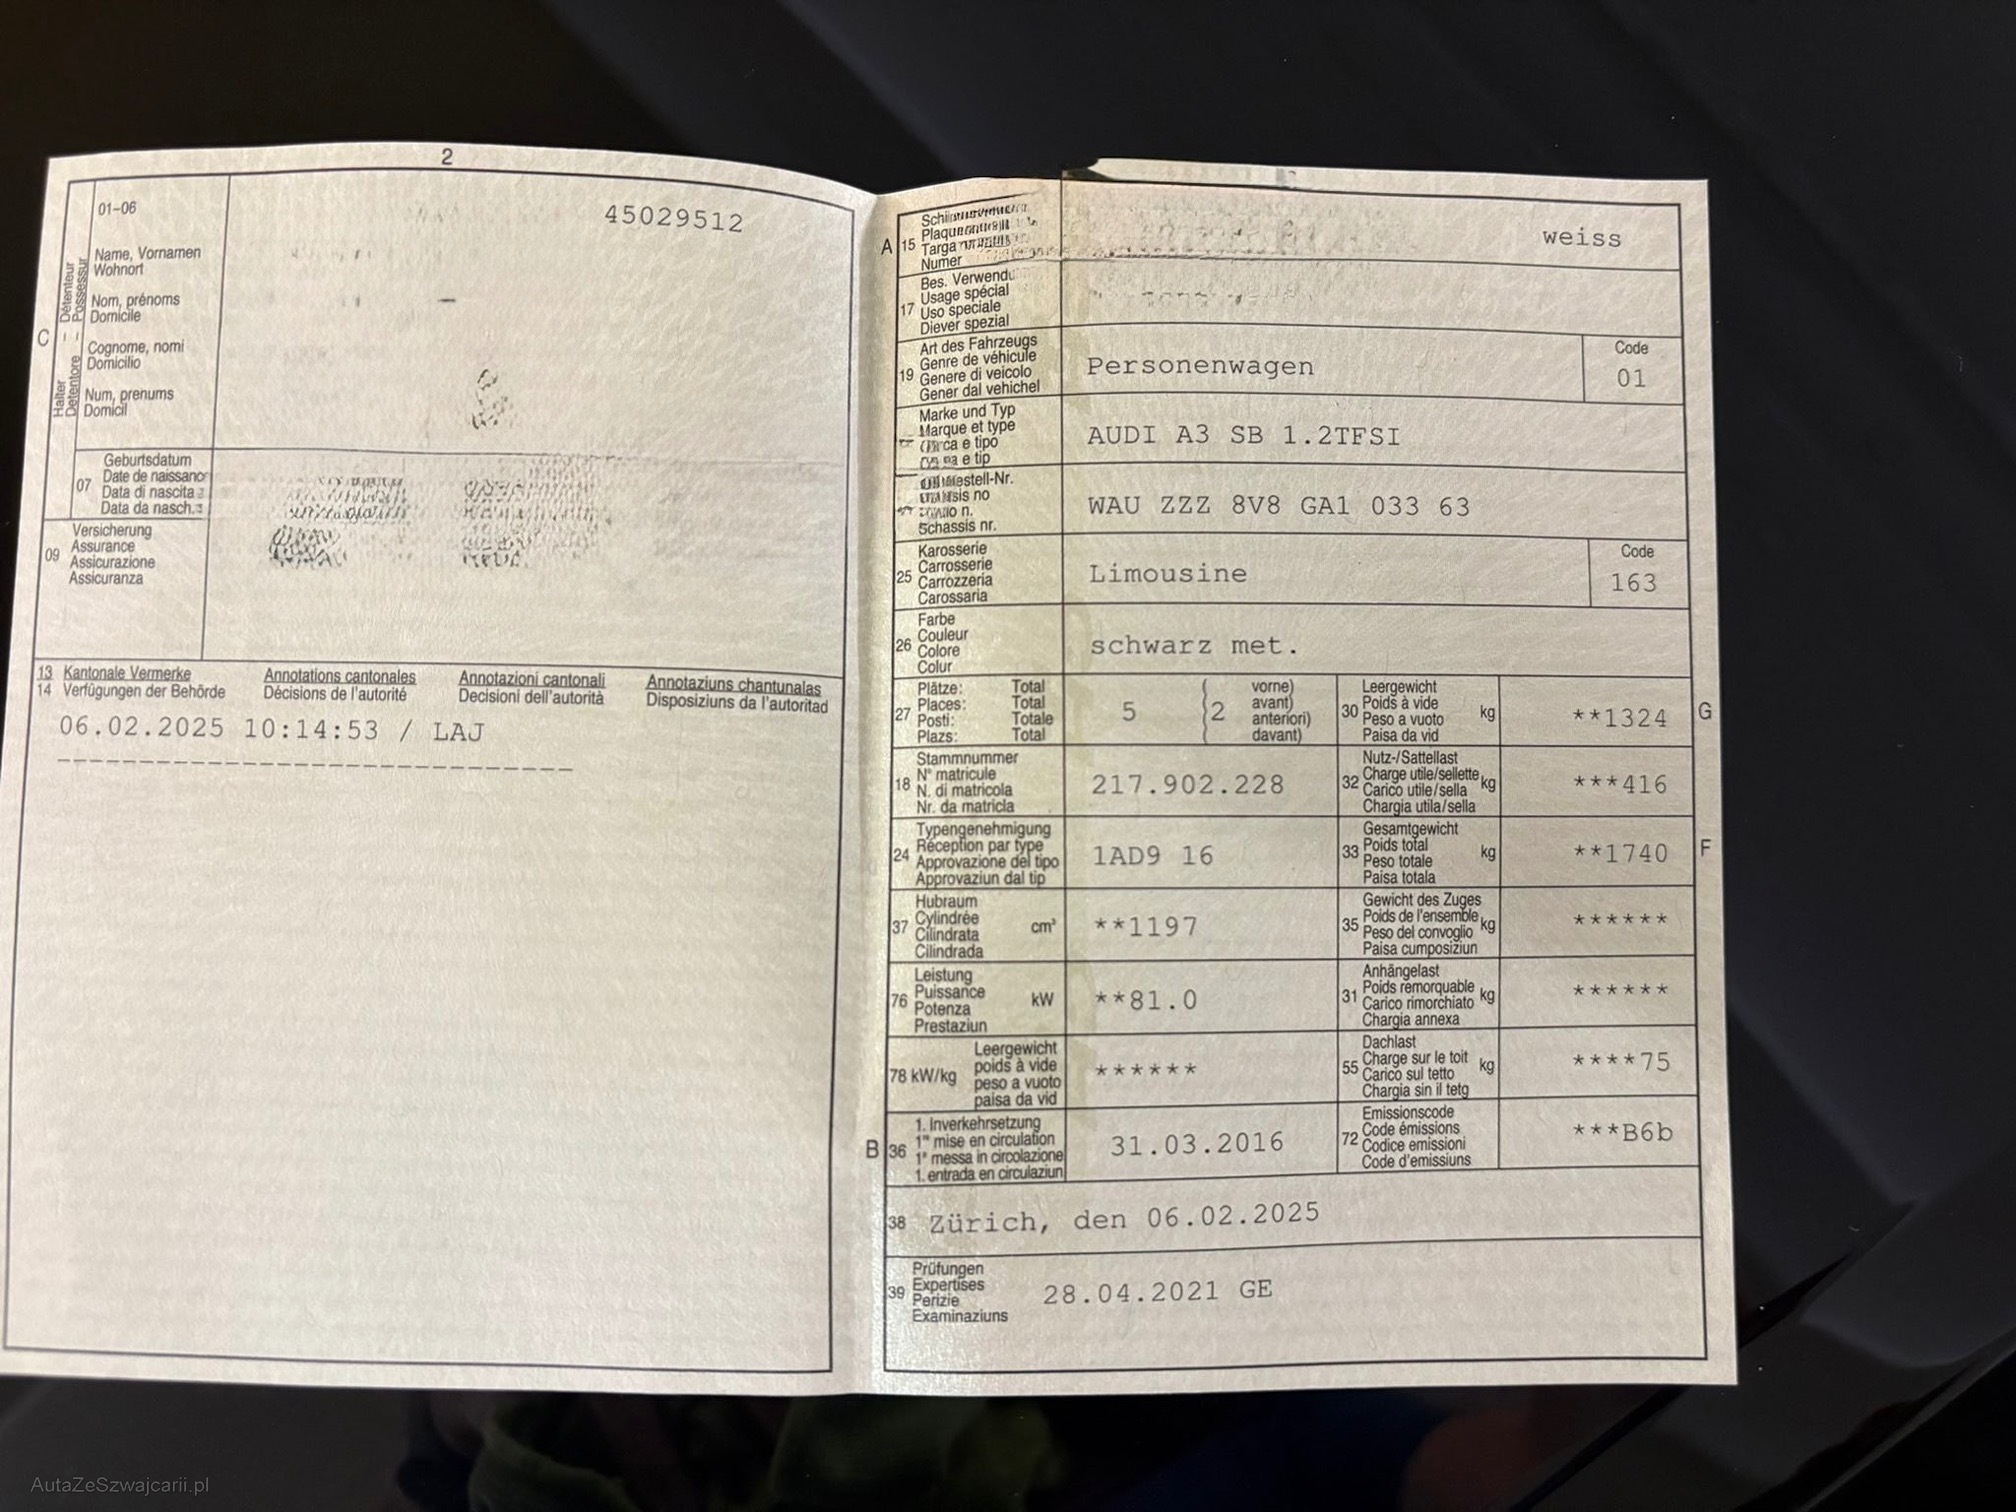 2
01-06
45029512
C
Halter – Détenteur
Detentore – Possessur
Name, Vornamen
Wohnort
Nom, prénoms
Domicile
Cognome, nomi
Domicilio
Num, prenums
Domicil
07
Geburtsdatum
Date de naissance
Data di nascita
Data da nasch.
09
Versicherung
Assurance
Assicurazione
Assicuranza
13 Kantonale Vermerke Annotations cantonales Annotazioni cantonali Annotaziuns chantunalas
14 Verfügungen der Behörde Décisions de l'autorité Decisioni dell'autorità Disposiziuns da l'autoritad
06.02.2025 10:14:53 / LAJ
A 15
Targa
Numer
weiss
17
Bes.
Usage spécial
Uso speciale
Diever spezial
19
Art des Fahrzeugs
Genre de véhicule
Genere di veicolo
Gener dal vehichel
Personenwagen
Code
01
Marke und Typ
Marque et type
e tipo
e tip
AUDI A3 SB 1.2TFSI
no
n.
Schassis nr.
WAU ZZZ 8V8 GA1 033 63
25
Karosserie
Carrosserie
Carrozzeria
Carossaria
Limousine
Code
163
26
Farbe
Couleur
Colore
Colur
schwarz met.
27
Plätze: Total
Places: Total
Posti: Totale
Plazs: Total
5 (2 vorne)
avant)
anteriori)
davant)
30
Leergewicht
Poids à vide
Peso a vuoto
Paisa da vid
kg
**1324
G
18
Stammnummer
N° matricule
N. di matricola
Nr. da matricla
217.902.228
32
Nutz-/Sattellast
Charge utile/sellette
Carico utile/sella
Chargia utila/sella
kg
***416
24
Typengenehmigung
Réception par type
Approvazione del tipo
Approvaziun dal tip
1AD9 16
33
Gesamtgewicht
Poids total
Peso totale
Paisa totala
kg
**1740
F
37
Hubraum
Cylindrée
Cilindrata
Cilindrada
cm³
**1197
35
Gewicht des Zuges
Poids de l'ensemble
Peso del convoglio
Paisa cumposiziun
kg
******
76
Leistung
Puissance
Potenza
Prestaziun
kW
**81.0
31
Anhängelast
Poids remorquable
Carico rimorchiato
Chargia annexa
kg
******
78 kW/kg
Leergewicht
poids à vide
peso a vuoto
paisa da vid
******
55
Dachlast
Charge sur le toit
Carico sul tetto
Chargia sin il tetg
kg
****75
B 36
1. Inverkehrsetzung
1re mise en circulation
1a messa in circolazione
1. entrada en circulaziun
31.03.2016
72
Emissionscode
Code émissions
Codice emissioni
Code d'emissiuns
***B6b
38 Zürich, den 06.02.2025
39
Prüfungen
Expertises
Perizie
Examinaziuns
28.04.2021 GE
AutaZeSzwajcarii.pl